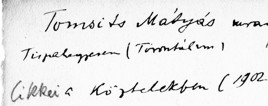 Tomsits Mátyás
Tiszahegyesen (Torontálm)
Cikkei a Köztelekben (1902